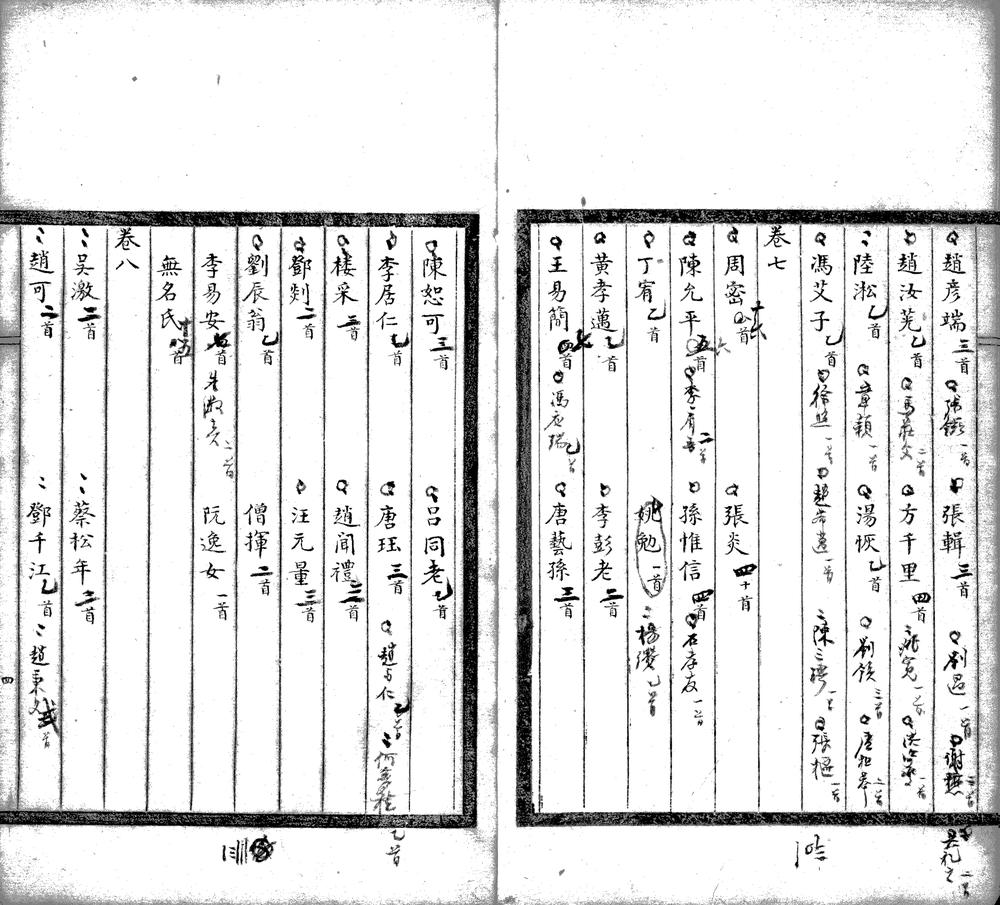 趙彥端三首 張鎡一首 張輯三首 劉過一首 謝懋二首
吳禮之二首
趙汝茪乙首 馬莊父二首 方千里四首 姚寬一首 洪一首
陸淞乙首 章穎一首 湯恢乙首 劉鎮三首
馮艾子乙首 徐照一首 一首 陳三聘一首 張樞一首
卷七
周密十六首 張炎四十首
陳允平首 李肩吾二首 孫惟信四首 石孝友一首
丁宥乙首 姚勉一首 楊纘乙首
黃孝邁乙首 李彭老二首
王易簡七首 馮應瑞乙首 唐藝孫三首
陳恕可三首 呂同老乙首
李居仁乙首 唐珏三首 趙與仁乙首 何夢桂乙首
樓采三首 趙聞禮三首
鄧剡二首 汪元量三首
劉辰翁乙首 僧揮二首
李易安首 朱淑真二首 阮逸女一首
無名氏十首
卷八
吳激二首 蔡松年二首
趙可二首 鄧千江乙首 趙秉文弍首
四